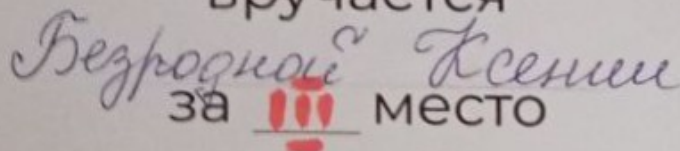 вручается
Безродной Ксении
за III место